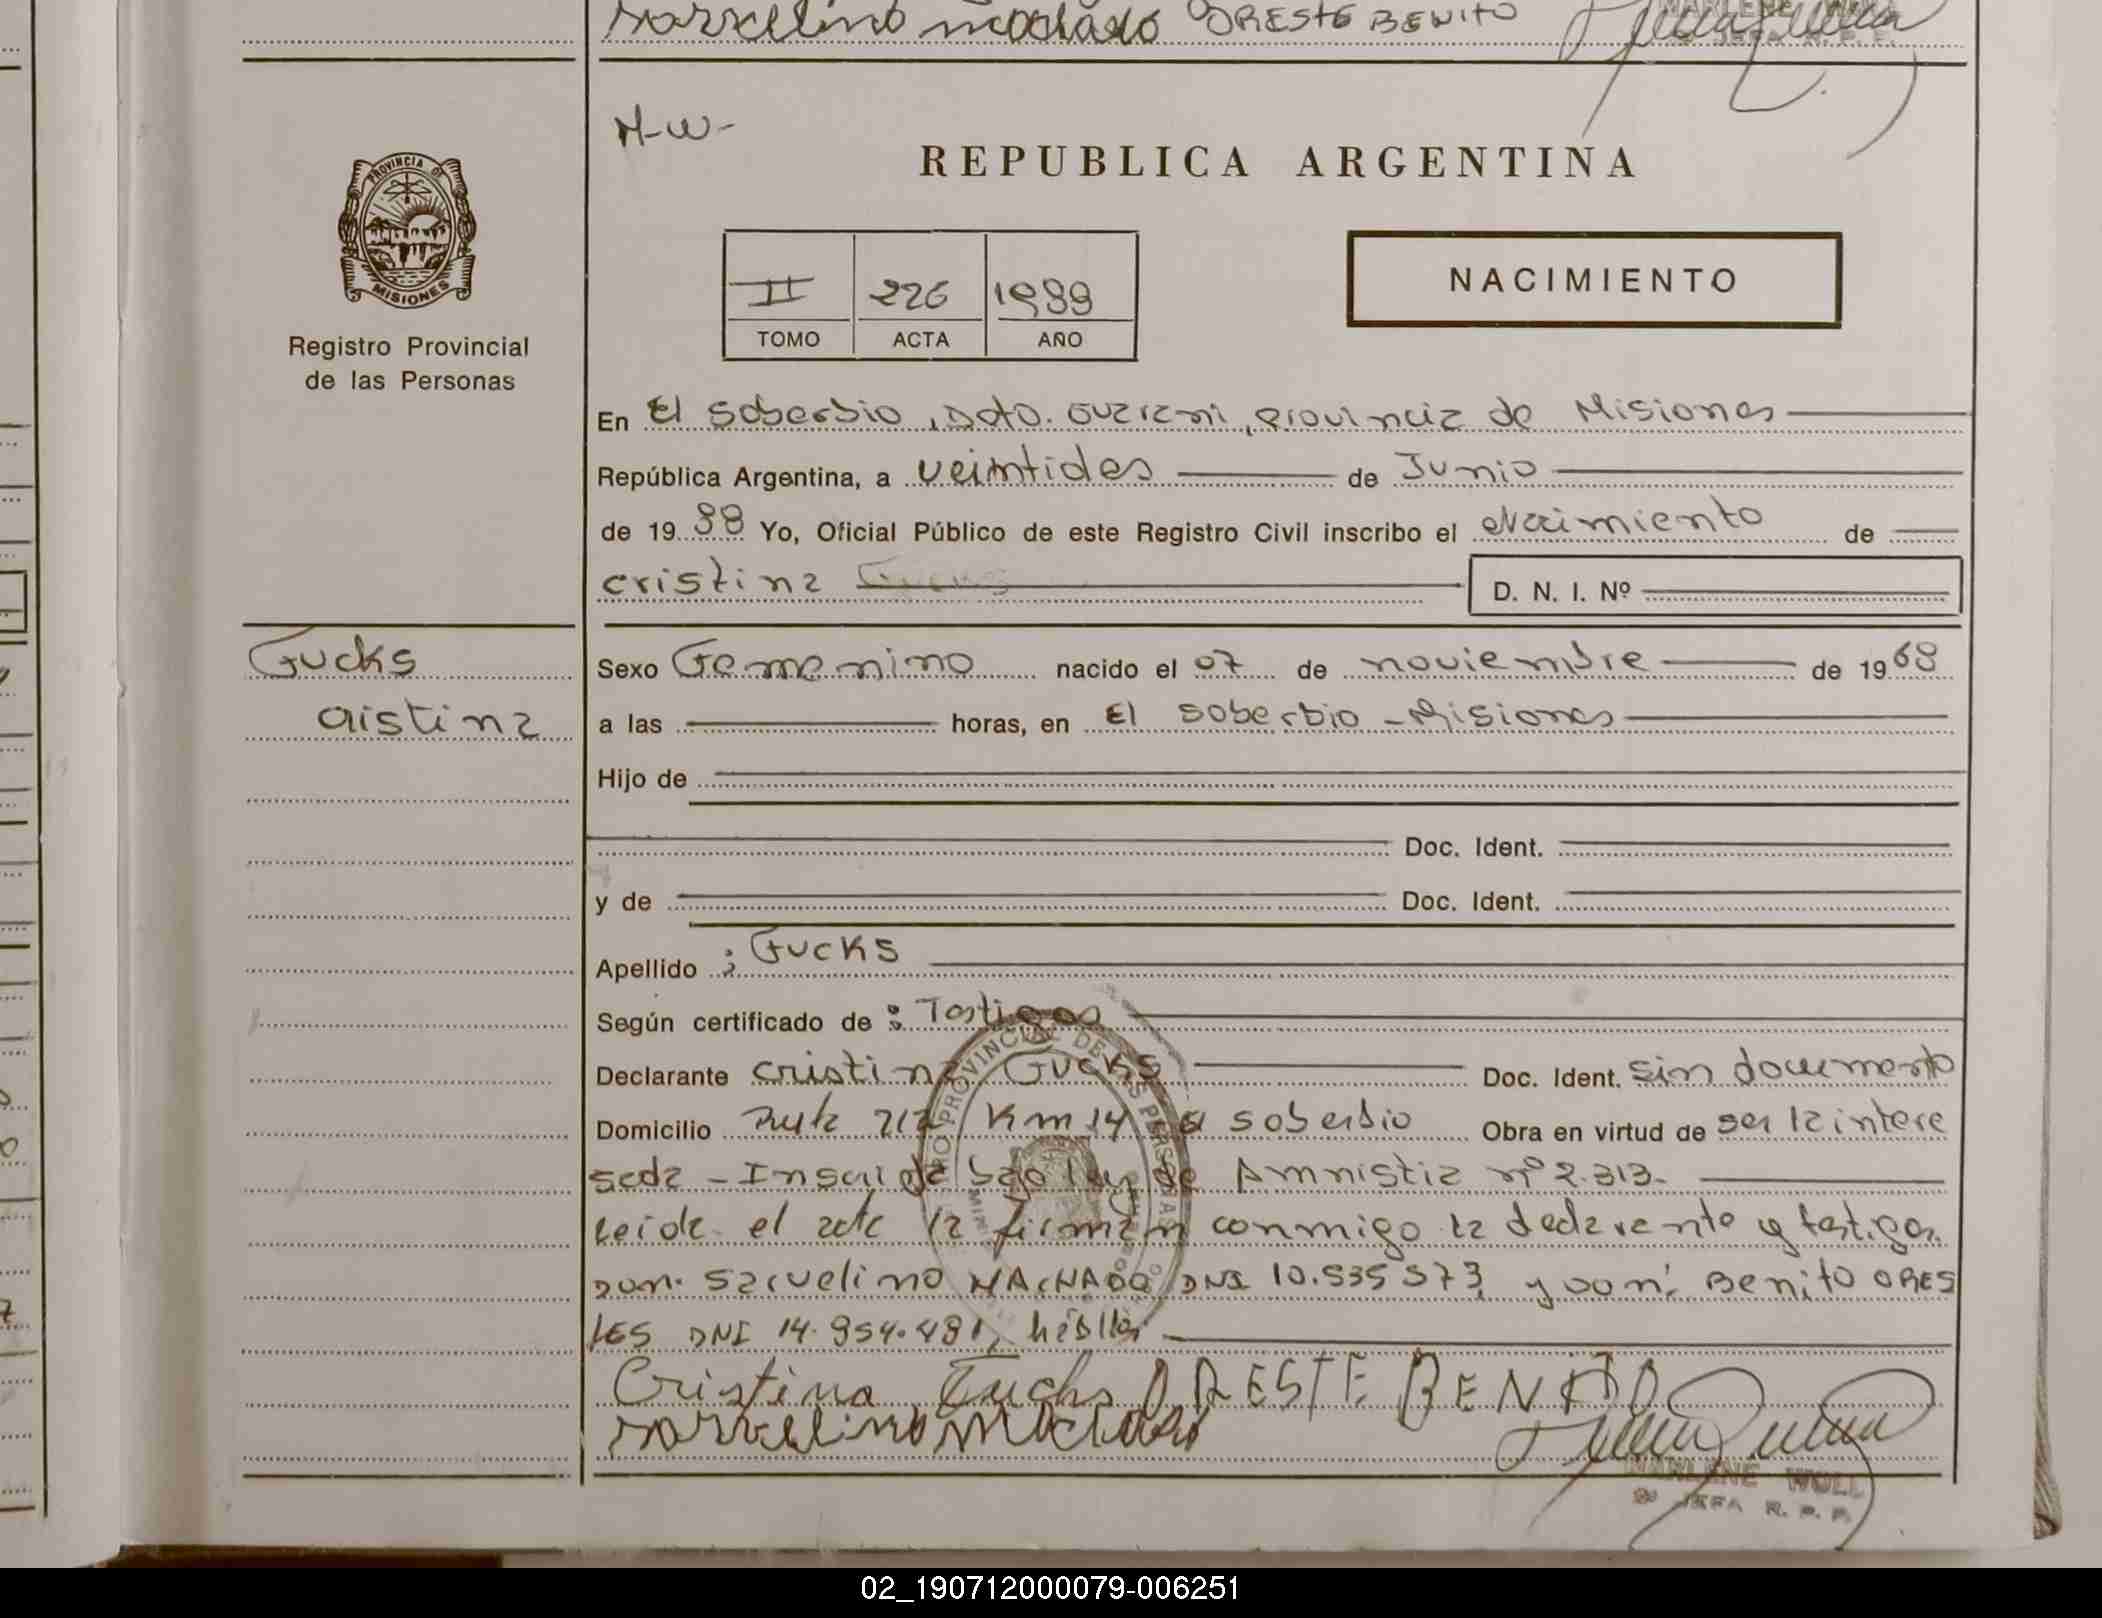 sarvelino machado ORESTE BENITO
MARLENE WOLL
JEFA R. P. P.
M-W-
REPUBLICA ARGENTINA
PROVINCIA DE
MISIONES
Registro Provincial
de las Personas
II 226 1988
TOMO ACTA AÑO
NACIMIENTO
En El Soberbio, Dpto. Guarani, provincia de Misiones
República Argentina, a veintidos de Junio
de 1988 Yo, Oficial Público de este Registro Civil inscribo el Nacimiento de
cristina Fucks D. N. I. Nº
Fucks
cristina
Sexo Femenino nacido el 07 de noviembre de 1968
a las horas, en El Soberbio - Misiones
Hijo de
Doc. Ident.
y de Doc. Ident.
Apellido : Fucks
Según certificado de : Testigos
Declarante cristina Fucks Doc. Ident. sin documento
Domicilio Ruta 212 Km 14 El soberbio Obra en virtud de ser la intere
sada - Inscripta bajo ley de Amnistia nº 2.313.
Leida el acta la firman conmigo la declarante y testigos
Don: Sarvelino MACHADO DNI 10.535 573 y DON: Benito ORES
TES DNI 14.954.481, hábiles
Cristina Fucks ORESTE BENITO
sarvelino machado
MARLENE WOLL
JEFA R. P. P.
02_190712000079-006251